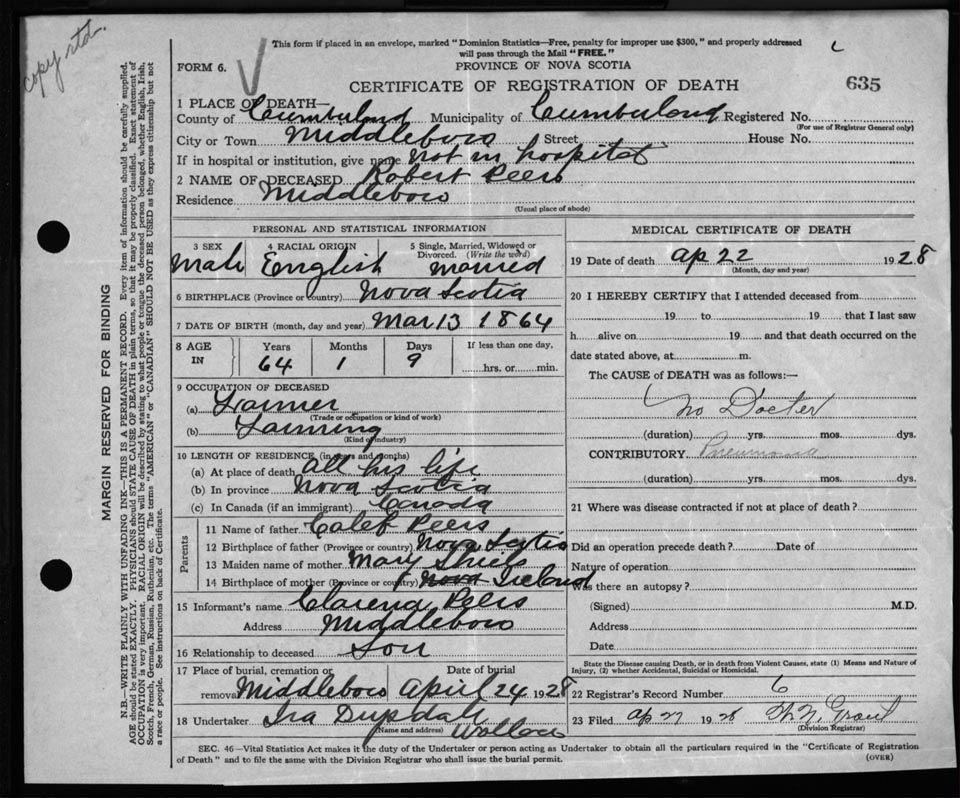 copy rtd.
This form if placed in an envelope, marked "Dominion Statistics—Free, penalty for improper use $300," and properly addressed
will pass through the Mail "FREE."
FORM 6.
PROVINCE OF NOVA SCOTIA
CERTIFICATE OF REGISTRATION OF DEATH
635
1 PLACE OF DEATH—
County of Cumberland Municipality of Cumberland Registered No.
(For use of Registrar General only)
City or Town Middleboro Street House No.
If in hospital or institution, give name not in hospital
2 NAME OF DECEASED Robert Peers
Residence Middleboro
(Usual place of abode)
PERSONAL AND STATISTICAL INFORMATION
3 SEX 4 RACIAL ORIGIN 5 Single, Married, Widowed or Divorced. (Write the word)
Male English married
6 BIRTHPLACE (Province or country) Nova Scotia
7 DATE OF BIRTH (month, day and year) Mar 13 1864
8 AGE IN Years Months Days If less than one day,
64 1 9 hrs. or min.
9 OCCUPATION OF DECEASED
(a) Farmer
(Trade or occupation or kind of work)
(b) Farming
(Kind of industry)
10 LENGTH OF RESIDENCE (in years and months)
(a) At place of death all his life
(b) In province Nova Scotia
(c) In Canada (if an immigrant) Canada
Parents
11 Name of father Calef Peers
12 Birthplace of father (Province or country) Nova Scotia
13 Maiden name of mother Mary
14 Birthplace of mother (Province or country) Nova Ireland
15 Informant's name Clarena Peers
Address Middleboro
16 Relationship to deceased Son
17 Place of burial, cremation or removal Date of burial
Middleboro April 24 1928
18 Undertaker Ira
(Name and address) Wallace
MEDICAL CERTIFICATE OF DEATH
19 Date of death Ap 22 1928
(Month, day and year)
20 I HEREBY CERTIFY that I attended deceased from
19 to 19 that I last saw
h alive on 19 and that death occurred on the
date stated above, at m.
The CAUSE of DEATH was as follows:—
No Docter
(duration) yrs. mos. dys.
CONTRIBUTORY Pneumonia
(duration) yrs. mos. dys.
21 Where was disease contracted if not at place of death?
Did an operation precede death? Date of
Nature of operation
Was there an autopsy?
(Signed) M.D.
Address
Date
State the Disease causing Death, or in death from Violent Causes, state (1) Means and Nature of
Injury, (2) whether Accidental, Suicidal or Homicidal.
22 Registrar's Record Number 6
23 Filed Ap 27 1928 Grant
(Division Registrar)
SEC. 46—Vital Statistics Act makes it the duty of the Undertaker or person acting as Undertaker to obtain all the particulars required in the "Certificate of Registration
of Death" and to file the same with the Division Registrar who shall issue the burial permit.
(OVER)
MARGIN RESERVED FOR BINDING
N.B.—WRITE PLAINLY WITH UNFADING INK—THIS IS A PERMANENT RECORD. Every item of information should be carefully supplied.
AGE should be stated EXACTLY. PHYSICIANS should STATE CAUSE OF DEATH in plain terms, so that it may be properly classified. Exact statement of
OCCUPATION is very important. RACIAL ORIGIN will be described by stating to what people or tongue the deceased person belonged, whether English, Irish,
Scotch, French, German, Russian, Ruthenian, etc. The terms "AMERICAN" or "CANADIAN" SHOULD NOT BE USED as they express citizenship but not
a race or people. See instructions on back of Certificate.